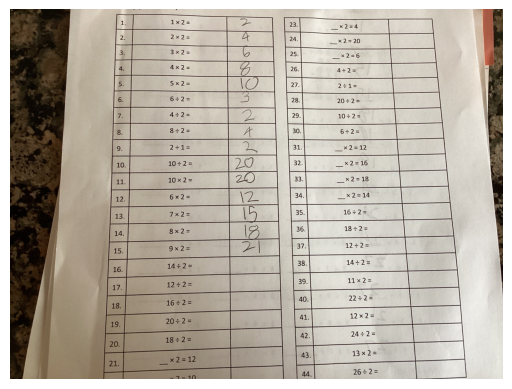 1. 1 × 2 = 2
2. 2 × 2 = 4
3. 3 × 2 = 6
4. 4 × 2 = 8
5. 5 × 2 = 10
6. 6 ÷ 2 = 3
7. 4 ÷ 2 = 2
8. 8 ÷ 2 = 4
9. 2 ÷ 1 = 2
10. 10 ÷ 2 = 20
11. 10 × 2 = 20
12. 6 × 2 = 12
13. 7 × 2 = 15
14. 8 × 2 = 18
15. 9 × 2 = 21
16. 14 ÷ 2 =
17. 12 ÷ 2 =
18. 16 ÷ 2 =
19. 20 ÷ 2 =
20. 18 ÷ 2 =
21. __ × 2 = 12
23. __ × 2 = 4
24. __ × 2 = 20
25. __ × 2 = 6
26. 4 ÷ 2 =
27. 2 ÷ 1 =
28. 20 ÷ 2 =
29. 10 ÷ 2 =
30. 6 ÷ 2 =
31. __ × 2 = 12
32. __ × 2 = 16
33. __ × 2 = 18
34. __ × 2 = 14
35. 16 ÷ 2 =
36. 18 ÷ 2 =
37. 12 ÷ 2 =
38. 14 ÷ 2 =
39. 11 × 2 =
40. 22 ÷ 2 =
41. 12 × 2 =
42. 24 ÷ 2 =
43. 13 × 2 =
44. 26 ÷ 2 =